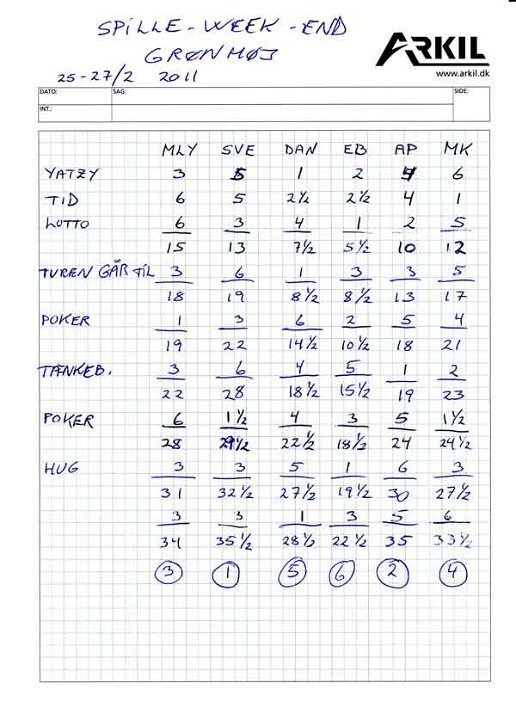 SPILLE-WEEK-END
GRØNHØJ
25-27/2 2011
ARKIL
www.arkil.dk
DATO: SAG: SIDE:
INT.:
MLY SVE DAN EB AP MK
YATZY 3 5 1 2 4 6
TID 6 5 2½ 2½ 4 1
LOTTO 6 3 4 1 2 5
15 13 7½ 5½ 10 12
TUREN GÅR TIL 3 6 1 3 3 5
18 19 8½ 8½ 13 17
POKER 1 3 6 2 5 4
19 22 14½ 10½ 18 21
TÆNKEB. 3 6 4 5 1 2
22 28 18½ 15½ 19 23
POKER 6 1½ 4 3 5 1½
28 29½ 22½ 18½ 24 24½
HUG 3 3 5 1 6 3
31 32½ 27½ 19½ 30 27½
3 3 1 3 5 6
34 35½ 28½ 22½ 35 33½
3 1 5 6 2 4